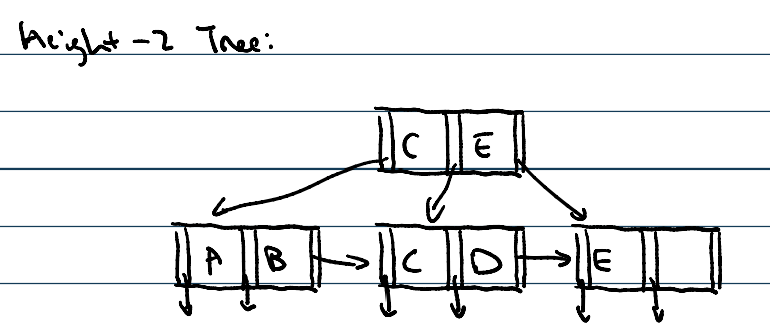 Height-2 Tree:
C E
A B C D E